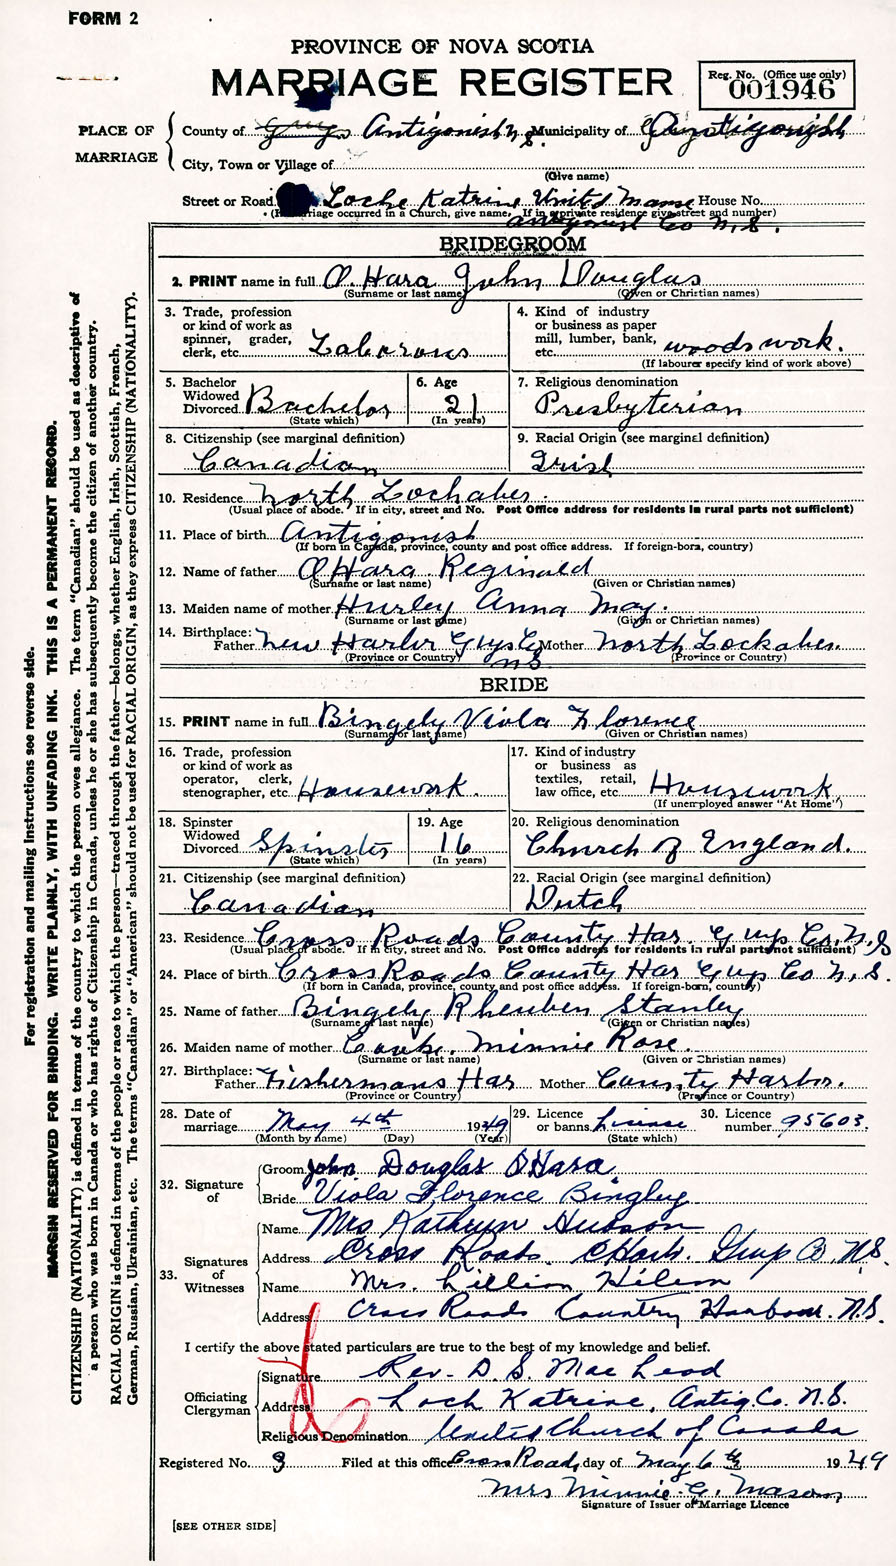 FORM 2
PROVINCE OF NOVA SCOTIA
MARRIAGE REGISTER
Reg. No. (Office use only)
001946
PLACE OF MARRIAGE
County of Antigonish N.S. Municipality of Antigonish
City, Town or Village of
(Give name)
Street or Road Loche Katrine United Manse House No.
(If marriage occurred in a Church, give name. If in a private residence give street and number)
Antigonish Co N.S.
BRIDEGROOM
2. PRINT name in full O Hara John Douglas
(Surname or last name) (Given or Christian names)
3. Trade, profession or kind of work as spinner, grader, clerk, etc. Laborous
4. Kind of industry or business as paper mill, lumber, bank, etc. woods work.
(If labourer specify kind of work above)
5. Bachelor Widowed Divorced Bachelor
(State which)
6. Age 21
(In years)
7. Religious denomination Presbyterian
8. Citizenship (see marginal definition) Canadian
9. Racial Origin (see marginal definition) Irish
10. Residence North Lochaber.
(Usual place of abode. If in city, street and No. Post Office address for residents in rural parts not sufficient)
11. Place of birth Antigonish
(If born in Canada, province, county and post office address. If foreign-born, country)
12. Name of father O Hara Reginald
(Surname or last name) (Given or Christian names)
13. Maiden name of mother Hurley Anna May.
(Surname or last name) (Given or Christian names)
14. Birthplace: Father New Harbr Guys Co N S Mother North Lockaber.
(Province or Country) (Province or Country)
BRIDE
15. PRINT name in full Bingely Viola Florence
(Surname or last name) (Given or Christian names)
16. Trade, profession or kind of work as operator, clerk, stenographer, etc. Housework.
17. Kind of industry or business as textiles, retail, law office, etc. Housework
(If unemployed answer "At Home")
18. Spinster Widowed Divorced Spinster
(State which)
19. Age 16
(In years)
20. Religious denomination Church of England.
21. Citizenship (see marginal definition) Canadian
22. Racial Origin (see marginal definition) Dutch
23. Residence Cross Roads County Har. Guys Co. N.S
(Usual place of abode. If in city, street and No. Post Office address for residents in rural parts not sufficient)
24. Place of birth Cross Roads County Har Guys Co N.S.
(If born in Canada, province, county and post office address. If foreign-born, country)
25. Name of father Bingely Rheuben Stanley
(Surname or last name) (Given or Christian names)
26. Maiden name of mother Minnie Rose.
(Surname or last name) (Given or Christian names)
27. Birthplace: Father Fishermans Har Mother County Harbor.
(Province or Country) (Province or Country)
28. Date of marriage May 4th 1949
(Month by name) (Day) (Year)
29. Licence or banns License
(State which)
30. Licence number 95603.
32. Signature of
Groom John Douglas O'Hara
Bride Viola Florence Bingley
33. Signatures of Witnesses
Name Mrs Kathryn Hudson
Address Cross Roads. C Harb. Guys Co. N.S.
Name Mrs. Lillian
Address Cross Roads Country Harbour. N.S.
I certify the above stated particulars are true to the best of my knowledge and belief.
Officiating Clergyman
Signature Rev. D. S. MacLeod
Address Loch Katrine, Antig. Co. N.S.
Religious Denomination United Church of Canada
Registered No. 3 Filed at this office Cross Roads, day of May 6th 1949
Mrs Minnie G. Mason
Signature of Issuer of Marriage Licence
[SEE OTHER SIDE]
For registration and mailing instructions see reverse side.
MARGIN RESERVED FOR BINDING. WRITE PLAINLY, WITH UNFADING INK. THIS IS A PERMANENT RECORD.
CITIZENSHIP (NATIONALITY) is defined in terms of the country to which the person owes allegiance. The term "Canadian" should be used as descriptive of
a person who was born in Canada or who has rights of Citizenship in Canada, unless he or she has subsequently become the citizen of another country.
RACIAL ORIGIN is defined in terms of the people or race to which the person—traced through the father—belongs, whether English, Irish, Scottish, French,
German, Russian, Ukrainian, etc. The terms "Canadian" or "American" should not be used for RACIAL ORIGIN, as they express CITIZENSHIP (NATIONALITY).